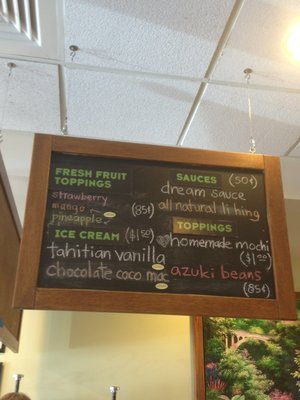 FRESH FRUIT
TOPPINGS
strawberry
mango
pineapple
(85¢)
ICE CREAM ($1.50)
tahitian vanilla
chocolate coco mac
SAUCES (50¢)
dream sauce
all natural li hing
TOPPINGS
homemade mochi
($1.00)
azuki beans
(85¢)